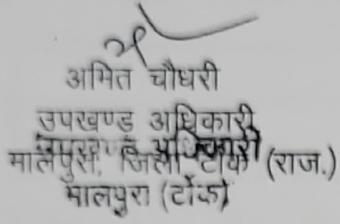 अमित चौधरी
उपखण्ड अधिकारी
उपखण्ड अधिकारी
मालपुरा, जिला टोंक (राज.)
मालपुरा (टोंक)